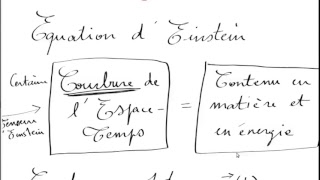 Equation d'Einstein
Certaine
Courbure de
l'Espace-
Temps
=
Contenu en
matière et
en énergie
Tenseur
d'Einstein